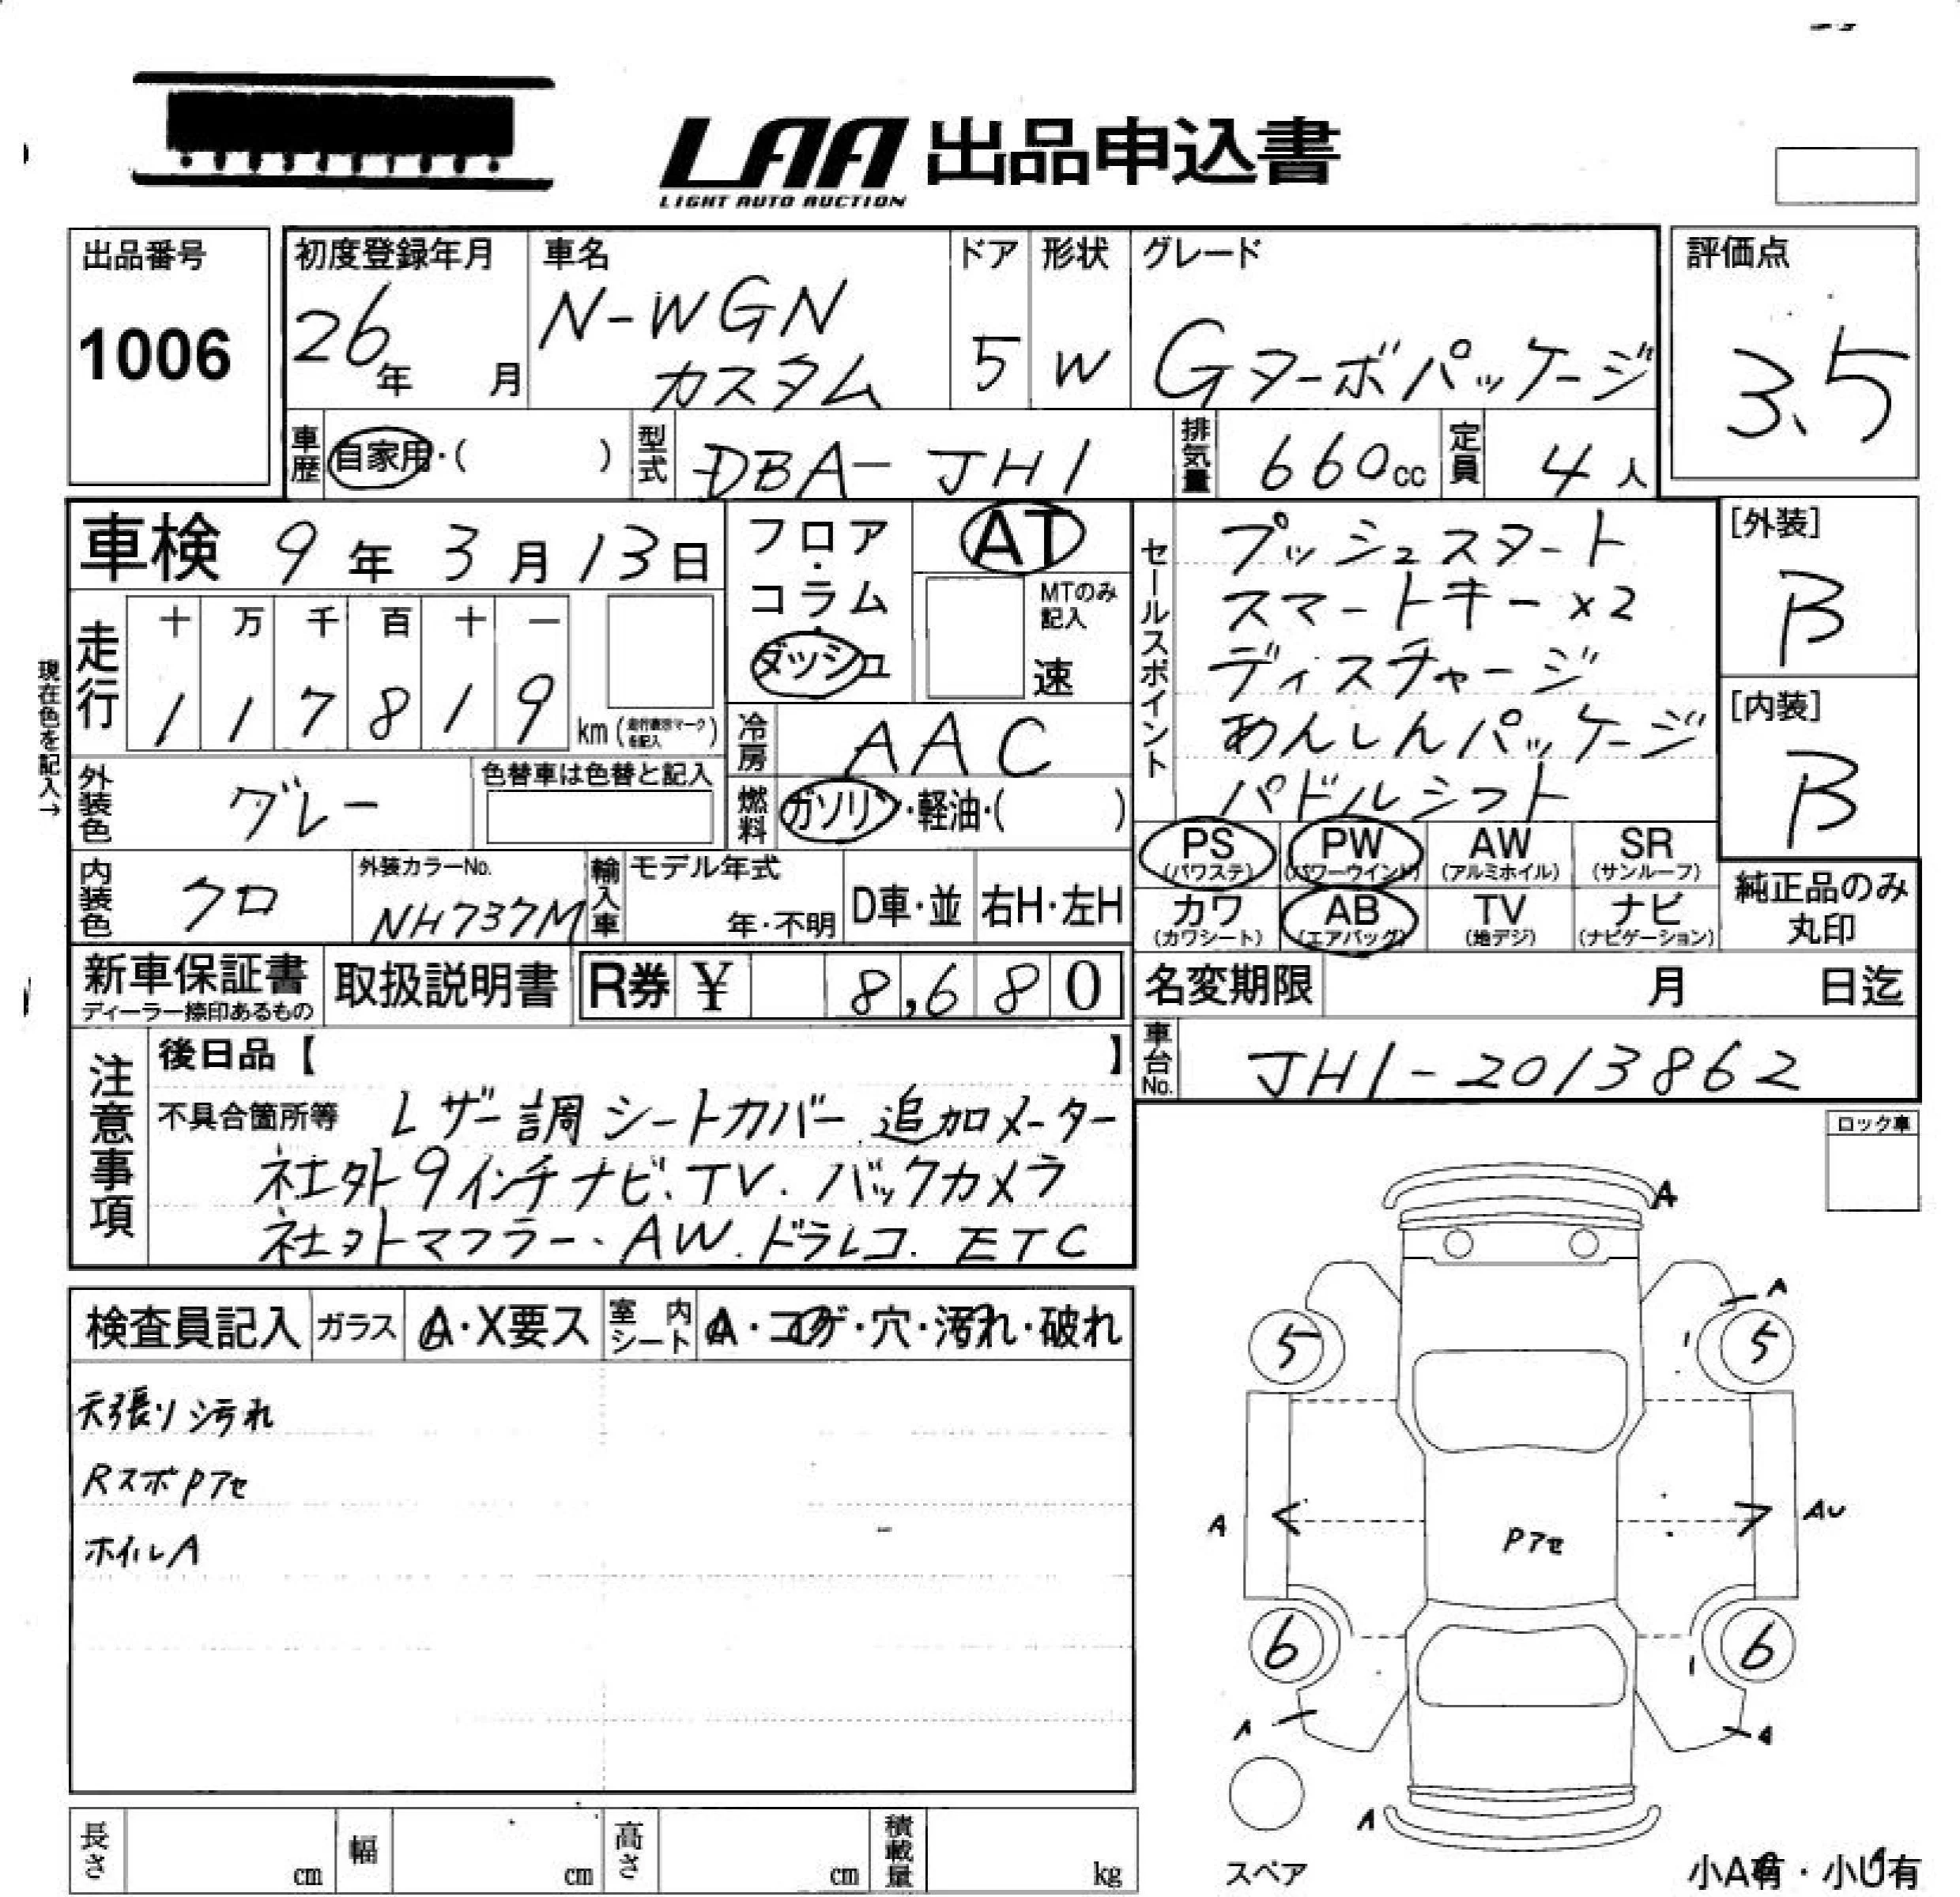 LAA 出品申込書
LIGHT AUTO AUCTION
出品番号
1006
初度登録年月
26年 月
車名
N-WGN
カスタム
ドア
5
形状
W
グレード
Gターボパッケージ
評価点
3.5
車歴 自家用・( )
型式 DBA-JH1
排気量 660cc
定員 4人
車検 9年3月13日
走行
十 万 千 百 十 一
1 1 7 8 1 9 km (走行表示マークを記入)
フロア・
コラム・
ダッシュ
AT
MTのみ
記入
速
冷房 AAC
燃料 ガソリン・軽油・( )
現在色を記入→
外装色 グレー
色替車は色替と記入
内装色 クロ
外装カラーNo.
NH737M
輸入車
モデル年式
年・不明
D車・並
右H・左H
セールスポイント
プッシュスタート
スマートキー×2
ディスチャージ
あんしんパッケージ
パドルシフト
[外装]
B
[内装]
B
PS PW AW SR
(パワステ) (パワーウインド) (アルミホイル) (サンルーフ)
カワ AB TV ナビ
(カワシート) (エアバッグ) (地デジ) (ナビゲーション)
純正品のみ
丸印
新車保証書
ディーラー捺印あるもの
取扱説明書
R券 ¥ 8,680
名変期限 月 日迄
車台No. JH1-2013862
注意事項
後日品【 】
不具合箇所等 レザー調シートカバー 追加メーター
社外9インチナビ、TV. バックカメラ
社外マフラー、AW.ドラレコ. ETC
ロック車
検査員記入
ガラス
A・X要ス
室内シート
A・コゲ・穴・汚れ・破れ
天張り汚れ
RスポPアセ
ホイルA
A
A
5 5
A AU
Pアセ
6 6
A A
A
スペア
小A有・小U有
長さ cm
幅 cm
高さ cm
積載量 kg